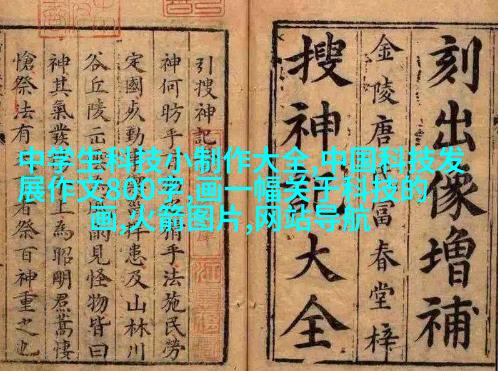 中学生科技小制作大全,中国科技发
展作文800字,画一幅关于科技的
画,火箭图片,网站导航
刻出像增補
金陵唐氏富春堂梓
搜神記大全
引搜神記
神何昉乎手法施民勞
定國捍患及山林川
谷丘陵云見怪物皆曰
神其氣發上為昭明焄蒿悽
愴祭法有者祭百神重之也